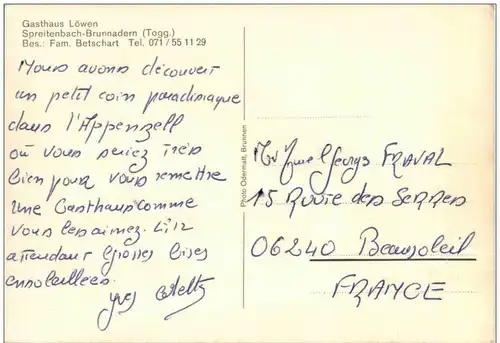 Gasthaus Löwen
Spreitenbach-Brunnadern (Togg.)
Bes.: Fam. Betschart Tel. 071/55 11 29
Nous avons découvert
un petit coin paradisiaque
dans l'Appenzell
où vous seriez très
bien pour vous remettre
une Gasthaus comme
vous les aimez.
attendant grosses bises
ensoleillées.
Yves
Photo Odermatt, Brunnen
Mr Georges FRAVAL
15 ROUTE des SERRES
06240 Beausoleil
FRANCE